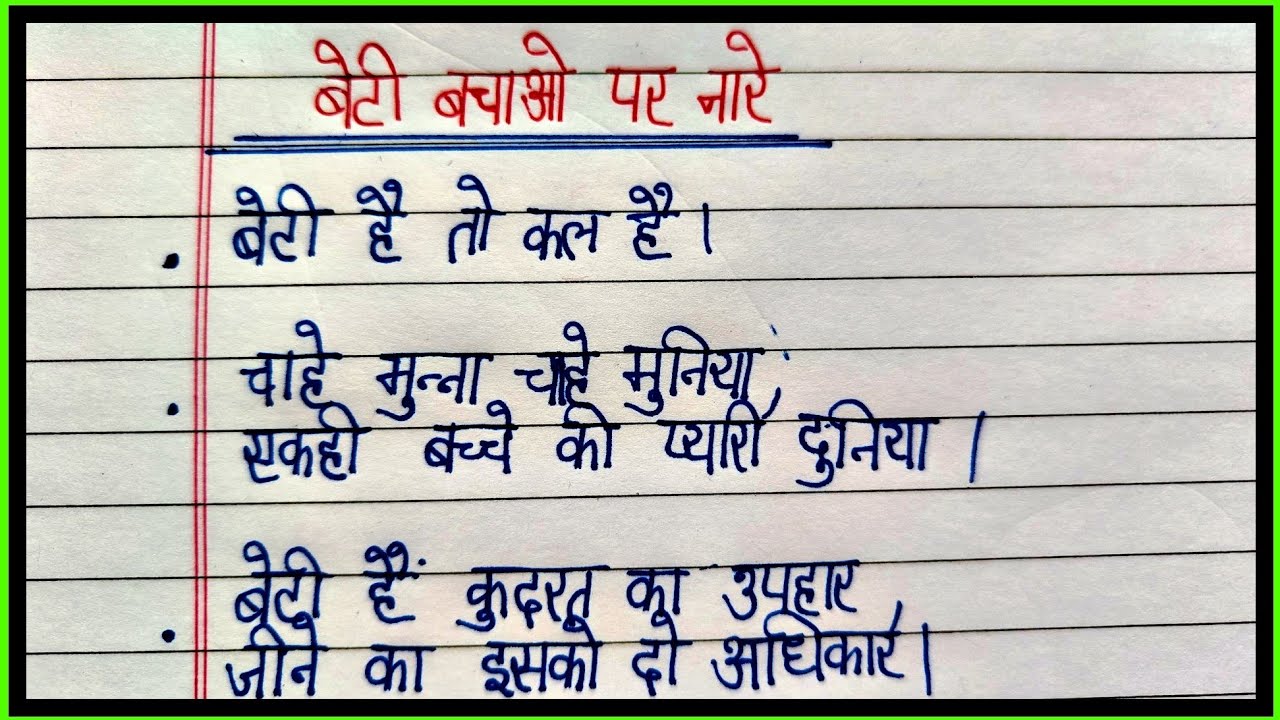 बेटी बचाओ पर नारे
बेटी है तो कल है।
चाहे मुन्ना चाहे मुनिया,
एकही बच्चे की प्यारी दुनिया।
बेटी हैं कुदरत का उपहार
जीने का इसको दो अधिकार।